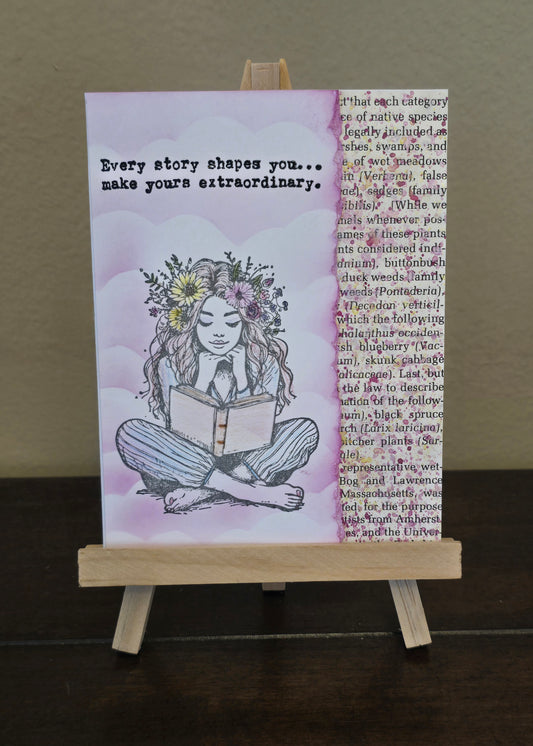 Every story shapes you...
make yours extraordinary.
that each category
ce of native species
legally included as
rshes, swamps, and
e of wet meadows
(Verbena), false
eae), sedges (family
ibilis). [While we
mals whenever pos-
ames of these plants
nts considered indi-
dnium), buttonbush
duck weeds (family
weeds (Pontederia),
(Decodon verticil-
which the following
halanthus occiden-
sh blueberry (Vac-
um), skunk cabbage
olicaceae). Last, but
the law to describe
nation of the follow-
num), black spruce
rch (Larix laricina),
itcher plants (Sar-
representative wet-
Bog and Lawrence
Massachusetts, was
ted, for the purpose
tists from Amherst,
es, and the Univer-